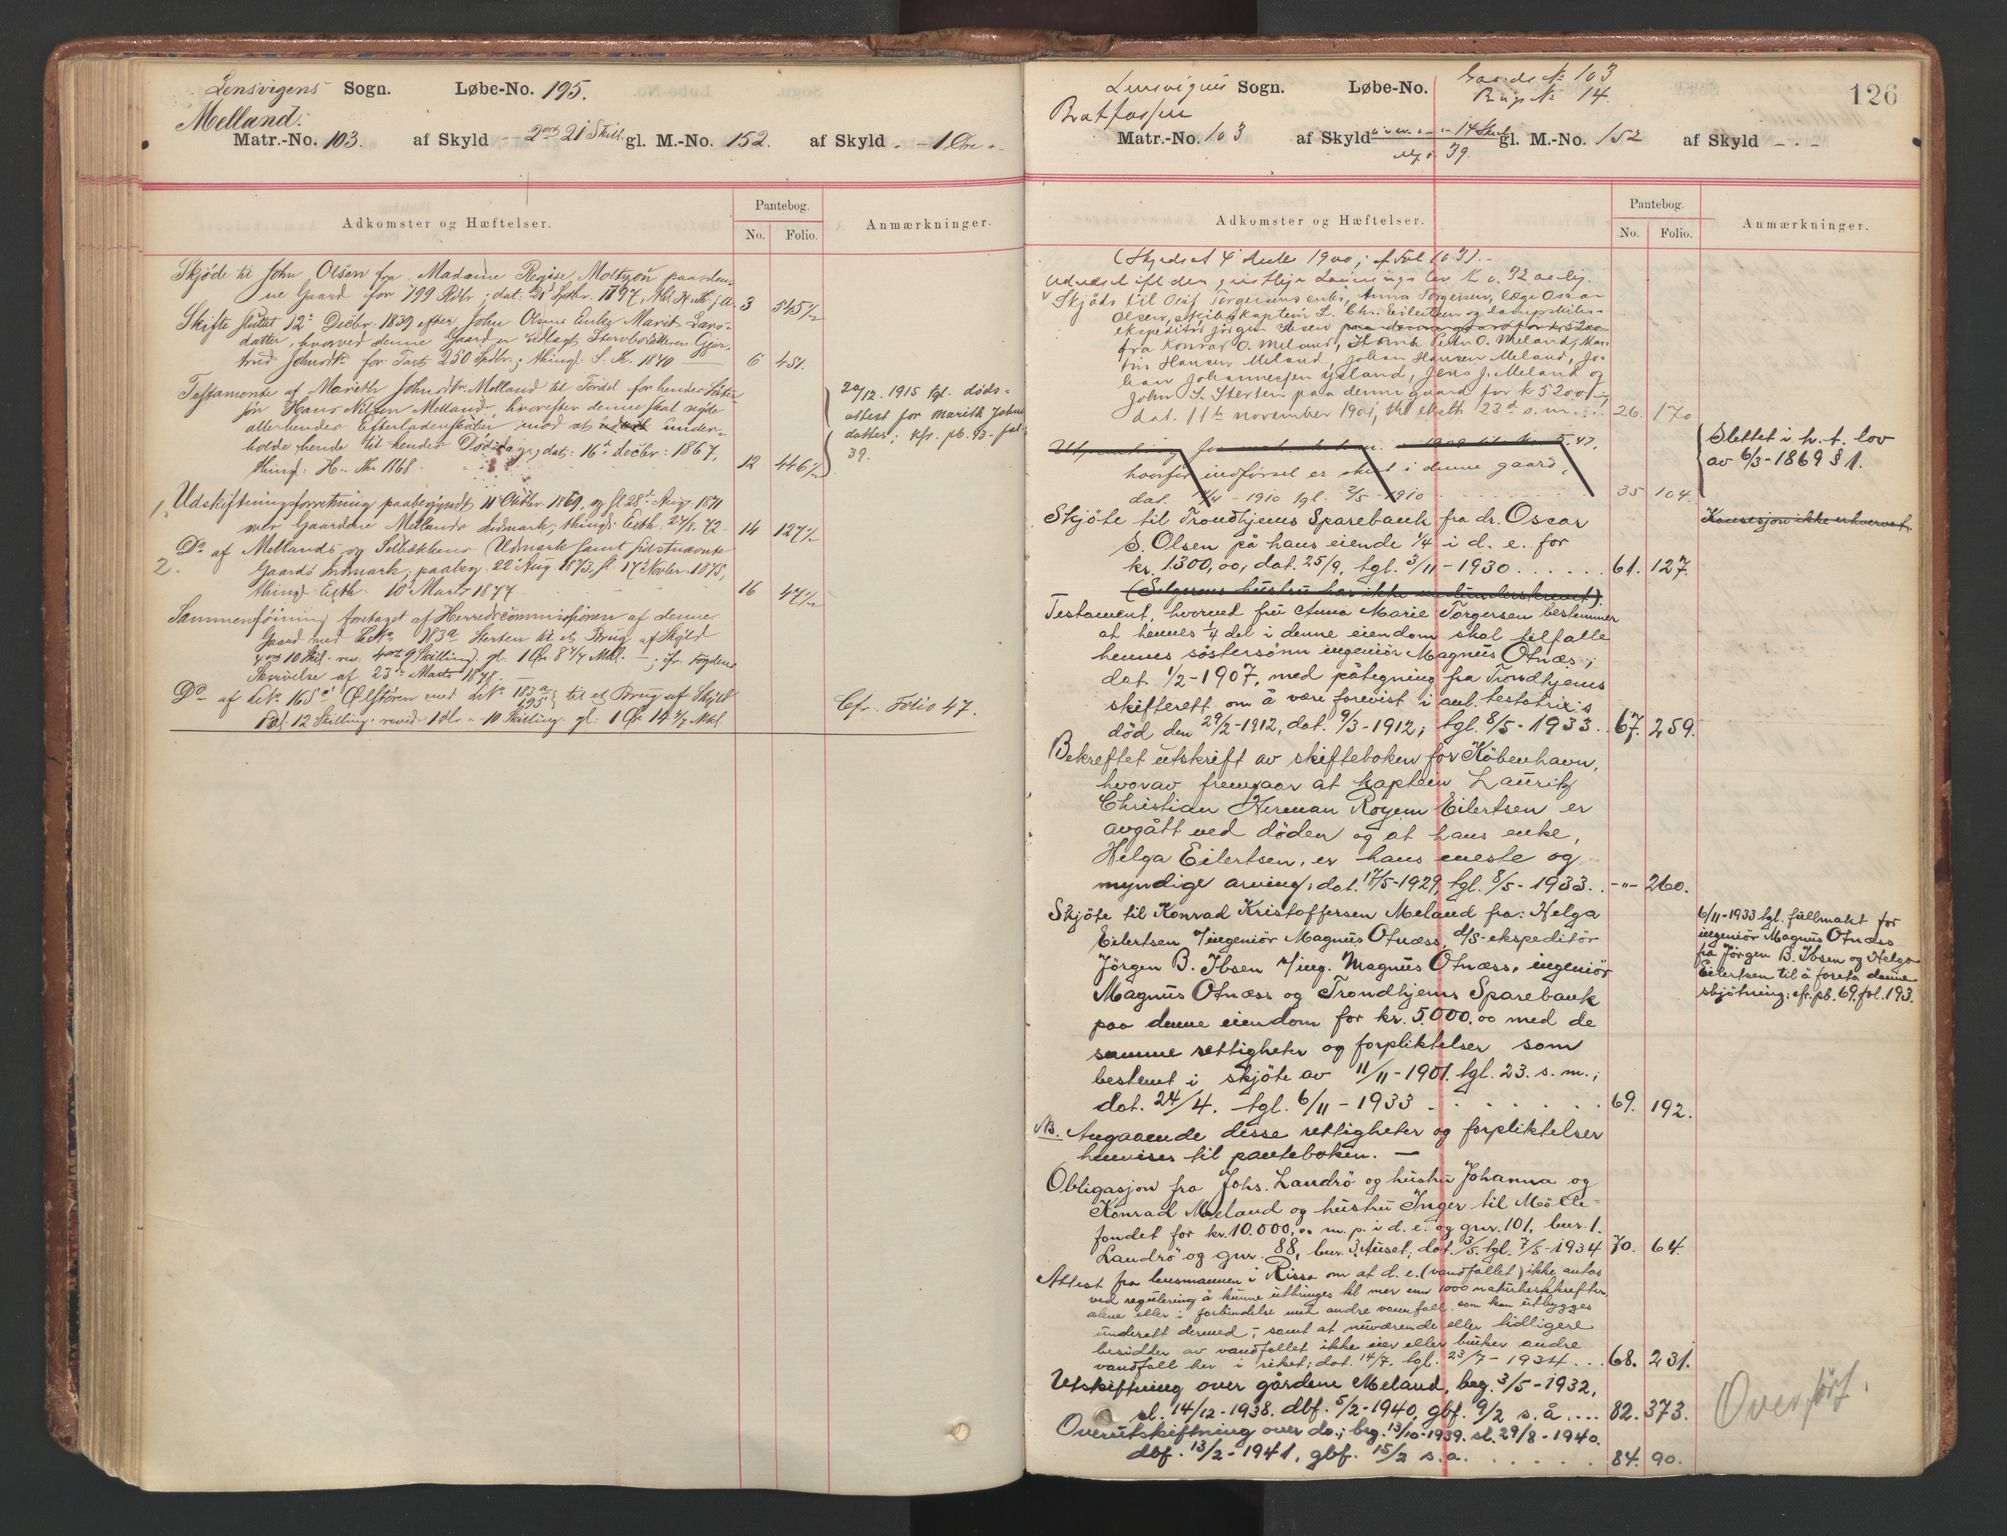 Lensvigens Sogn. Løbe-No. 195.
Melland:
Matr.-No. 103. af Skyld 2 ort 21 Skill. gl. M.-No. 152. af Skyld - 1 Øre -
Pantebog.
Adkomster og Hæftelser. No. Folio. Anmærkninger.
Skjøde til John Olsen fra Madame Regise Moltzou paa den-
ne Gaard for 199 Rdlr; dat. 21 Septbr. 1797, 3 545b
Skifte sluttet 12te Decbr. 1839 efter John Olsens Enke Marit Lars-
datter, hvorved denne Gaard er udlagt Stervbodatteren Gjer-
trud Johnsdtr for Taxt 250 Spdlr; thingl. S. Th. 1840 6 451.
Testamente af Mareth Johnsdtr. Melland til Fordel for hendes Søster-
søn Hans Nilsen Melland, hvorefter denne skal nyde
alle hendes Efterladenskaber mod at under-
holde hende til hendes Dødsdag; dat: 16de decbr: 1867,
thingl: H. Th. 1868. 12 446b
20/12. 1915 tgl. døds-
attest for Marith Johns
datter; kfr. pb. 93 - fol
39.
1. Udskiftningsforretning paabegyndt 11 Oktbr 1869, og sl. 28de Aug 1871
over Gaardene Mellands Indmark; thingl. Exth. 27/8. 72 - 14 127b
2. Do af Mellands og Selbækkens Udmark samt sidstnævnte
Gaards Indmark; paabeg. 22 Aug 1873, sl. 17 Novbr. 1875,
thingl. Exth. 10 Marts 1877 16 47b
Sammenføining foretaget af Herredscommissionen af denne
Gaard med LNo 183a Sterten til et Brug af Skyld
4 ort 10 Skil. rev. 4 ort 9 Skilling. gl. 1 Øre 8 4/7 Mkl. -; cfr. Fogdens
Skrivelse af 23de Marts 1878. -
Do af LNo 165c Ølstøren med LNo 183a 195 til et Brug af Skyld
1 Dl. 12 Skilling. revid. 1 dlr - 10 Skilling. gl. 1 Øre 14 2/7 Mkl. Cfr. Folio 47.
126
Lensvigens Sogn. Løbe-No. Gaards No 103
Brugs No 14.
Brattaasen
Matr.-No. 103 af Skyld 14 Skil gl. M.-No. 152 af Skyld - . -
39.
Pantebog.
Adkomster og Hæftelser. No. Folio. Anmærkninger.
(Skyldsat 4 Juli 1900, cf Fol 103). -
Udredes ift den Lov K 0.32 aarlig.
Skjøde til Oluf Torgersens enke, Anna Torgersen, læge Oscar
Olsen, skibskaptein L. Chr. Eilertsen og dampskibs-
ekspeditør Jørgen Ibsen paa denne gaard for kr 5200
fra Konrad O. Meland, Thomas Peter O. Meland, Mar-
tin Hansen Meland, Johan Hansen Meland, Jo-
han Johannesen Ysland, Jens J. Meland og
John S. Sterten paa denne gaard for k 5200.
dat. 11te november 1901, thl extth 23de s. m. 26. 170
hvorfor indførsel er sket i denne gaard,
dat. 4/4 - 1910 tgl. 2/5 - 1910 35 104.
Slettet i h. t. lov
av 6/3-1869 § 1.
Skjøte til Trondhjems Sparebank fra dr. Oscar
S. Olsen på hans eiende 1/4 i d. e. for
kr. 1300,00, dat. 25/9, tgl. 3/11-1930. 61. 127.
Konsesjon ikke erhvervet.
(Selgerens hustru har ikke medunderskrevet).
Testament, hvorved fru Anna Marie Torgersen bestemmer
at hennes 1/4 del i denne eiendom skal tilfalle
hennes søstersønn ingeniør Magnus Otnæs;
dat. 1/2-1907, med påtegning fra Trondhjems
skifterett om å være forevist i anl. testatrix's
død den 29/2-1912, dat. 9/3-1912; tgl. 8/5-1933. 67. 259.
Bekreftet utskrift av skifteboken for København,
hvorav fremgaar at kaptein Lauritz
Christian Herman Rogem Eilertsen er
avgått ved døden og at hans enke,
Helga Eilertsen, er hans eneste og
myndige arving; dat. 17/5-1929, tgl. 8/5-1933. -"- 260.
Skjöte til Konrad Kristoffersen Meland fra: Helga
Eilertsen v/ingeniör Magnus Otnæss, d/s-ekspeditör
Jörgen B. Ibsen v/ing. Magnus Otnæss, ingeniör
Magnus Otnæss og Trondhjems Sparebank
paa denne eiendom for kr. 5.000.00 med de
samme rettigheter og forpliktelser som
bestemt i skjöte av 11/11-1901. tgl. 23. s. m.;
dat. 24/4. tgl. 6/11-1933 69. 192.
6/11-1933 tgl. fullmakt for
ingeniör Magnus Otnæss
fra Jörgen B. Ibsen og Helga
Eilertsen til å foreta denne
skjötning; cfr. pb. 69. fol. 193.
NB. Angaaende disse rettigheter og forpliktelser
henvises til panteboken. -
Obligasjon fra Johs. Landrö og hustru Johanna og
Konrad Meland og hustru Inger til Mölle-
fondet for kr. 10.000,00 m. p. i d. e. og gnr. 101, bnr. 1.
Landrö og gnr. 88, bnr. 3 Auset, dat. 3/5. tgl. 7/5-1934 70. 64.
Attest fra lensmannen i Rissa om at d. e. (vandfallet) ikke antas
ved regulering å kunne utbringes til mer enn 1000 naturhestekrefter,
alene eller i forbindelse med andre vannfall, som kan utbygges
underett dermed, - samt at nuværende eller tidligere
besidder av vandfallet ikke eier eller bruker andre
vandfall her i riket; dat. 14/7. tgl. 23/7-1934 68. 231.
Utskiftning over gårdene Meland, beg. 3/5-1932,
sl. 14/12-1938. dbf. 5/2-1940, gbf. 9/2 s. å. 82. 373.
Overutskiftning over do.; beg. 13/10-1939. sl. 29/8-1940.
dbf. 13/2-1941, gbf. 15/2 s. a. 84. 90.
Overført.